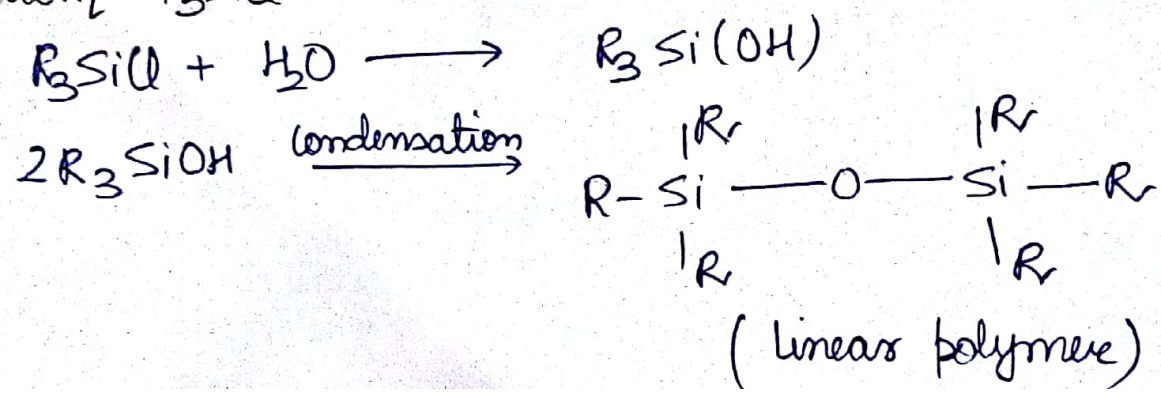 R₃SiCl + H₂O ⟶ R₃ Si(OH)
2R₃SiOH condensation⟶
R R
R- Si — O — Si — R
R R
(linear polymere)